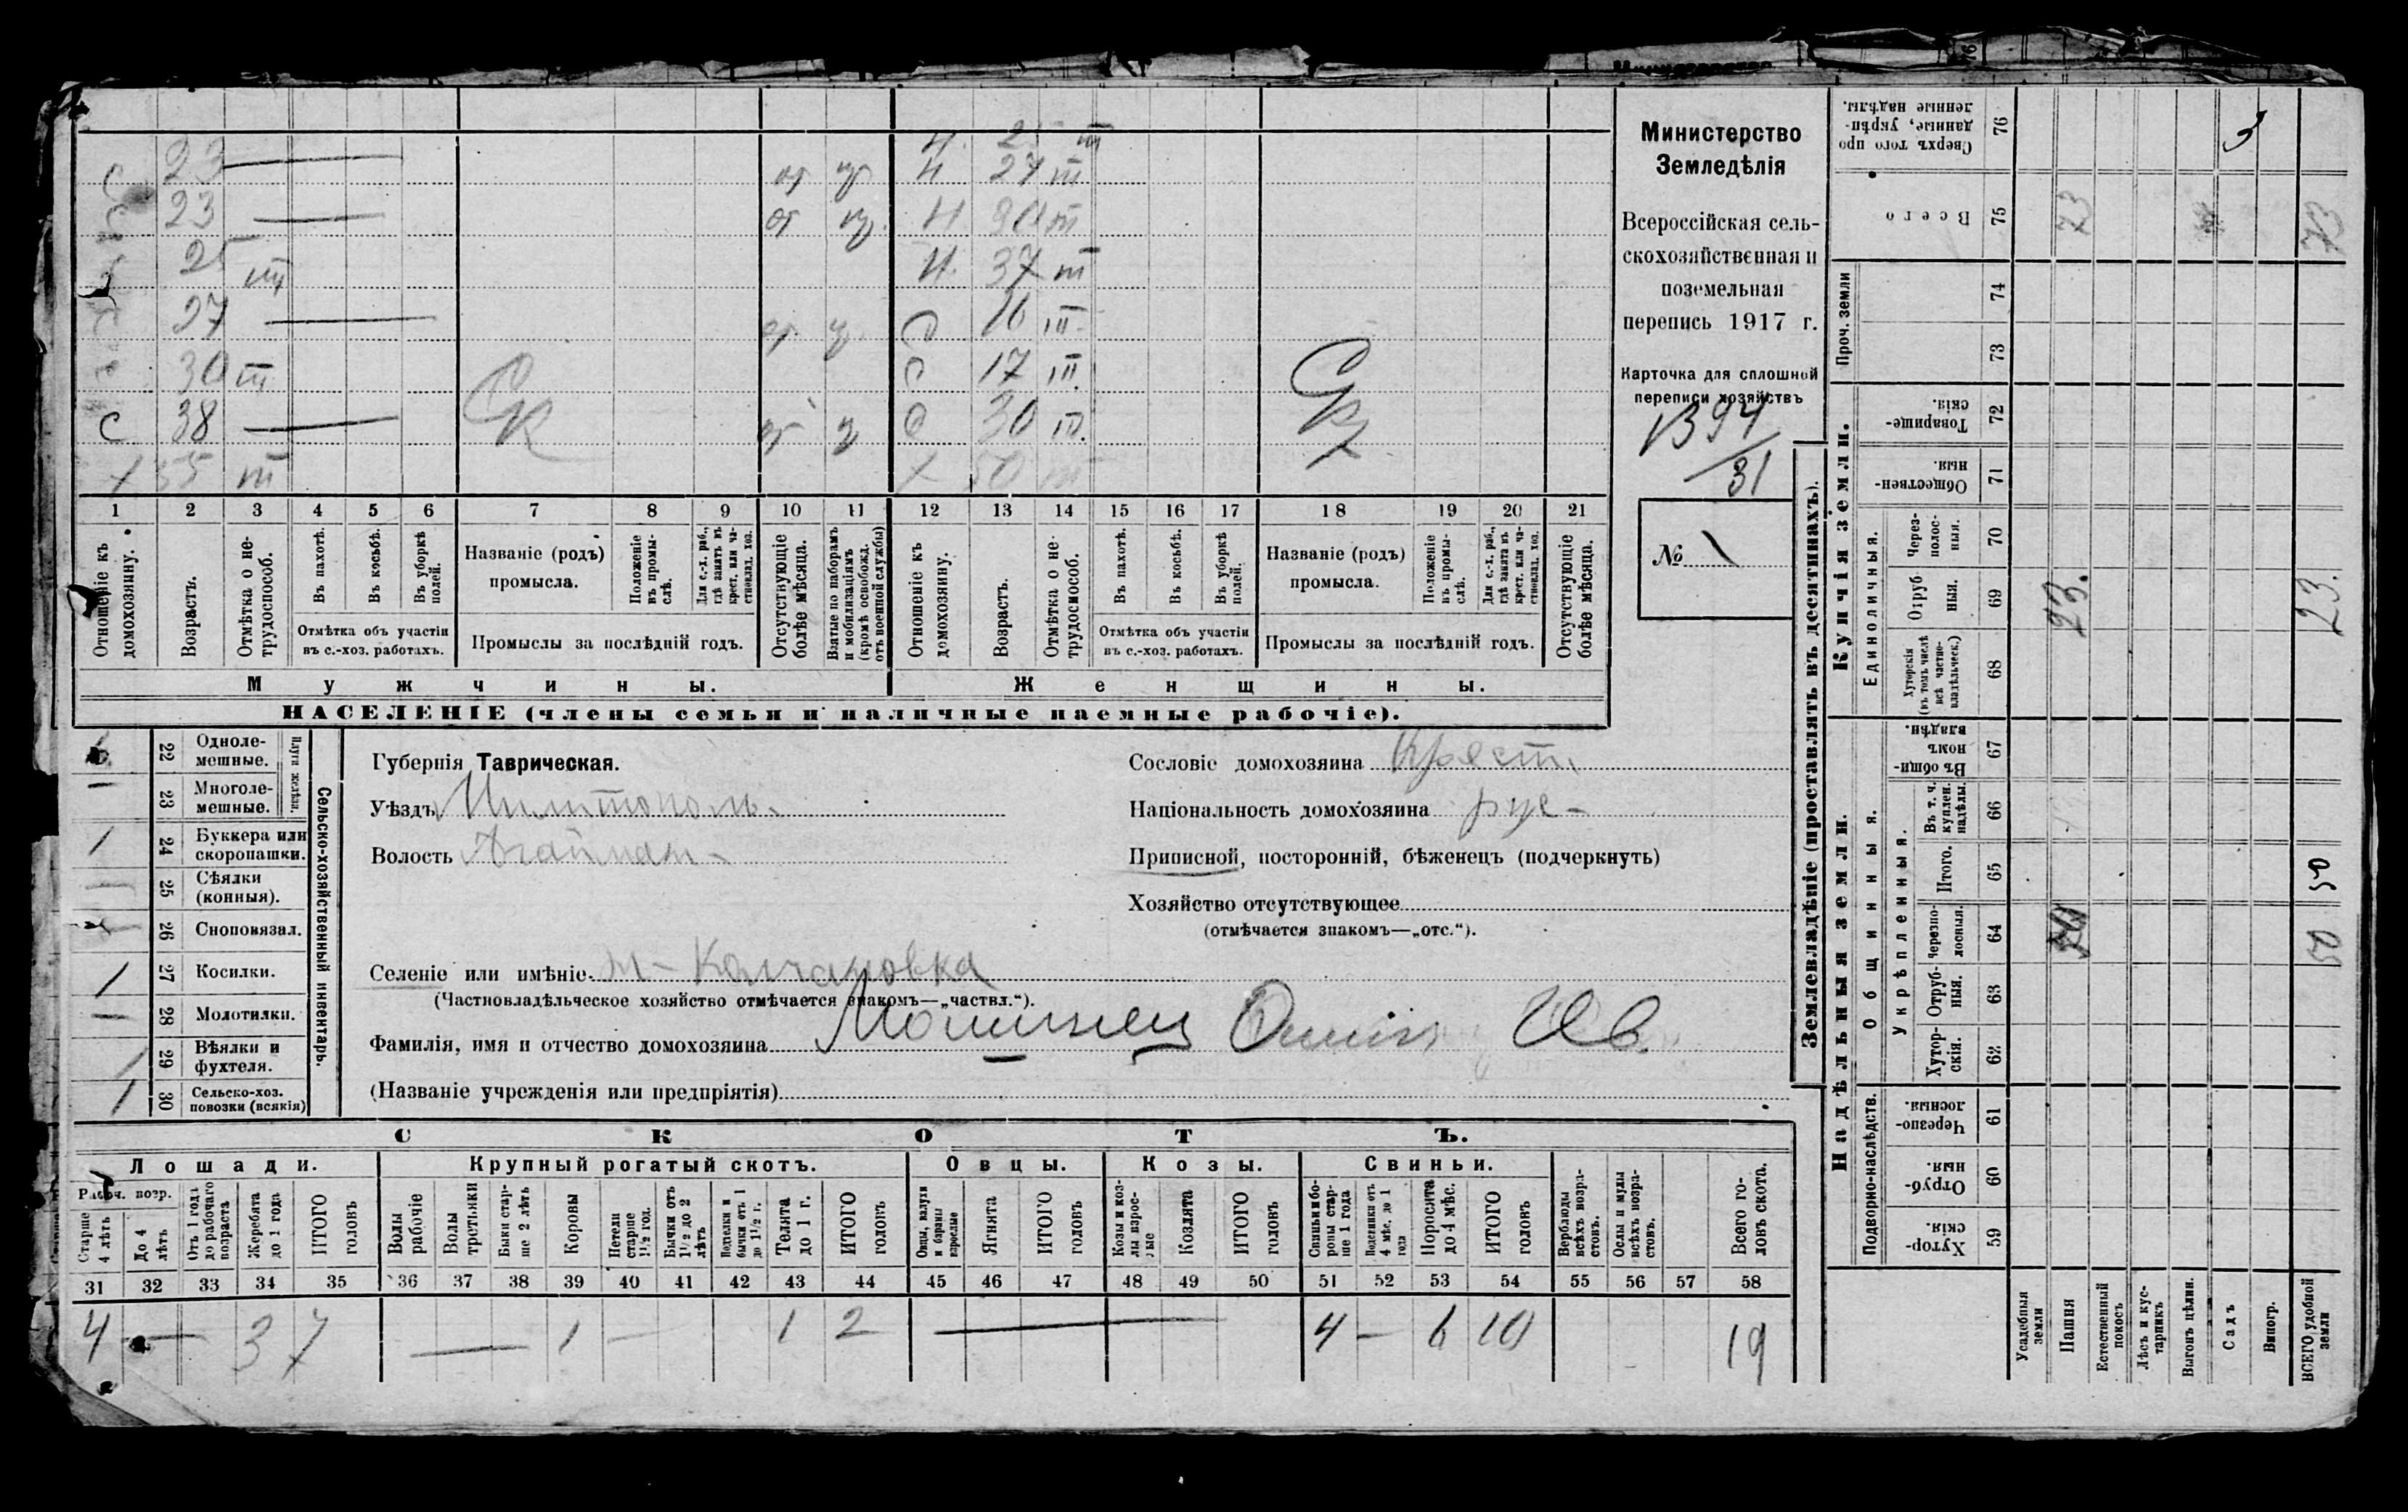 С 23 — от пр Н 25 m
Н 27 m
С 23 — от Н 90 m
25 m Н 37 m
27 — С 16 m
30 m С 17 m
С 38 — С 30 m
Х 55 m Х 50 m
1 2 3 4 5 6 7 8 9 10 11 12 13 14 15 16 17 18 19 20 21
Отношеніе къ домохозяину.
Возрастъ.
Отмѣтка о не-трудоспособ.
Въ пахотѣ.
Въ косьбѣ.
Въ уборкѣ полей.
Отмѣтка объ участіи
въ с.-хоз. работахъ.
Названіе (родъ)
промысла.
Положеніе въ промы-слѣ.
Для с.-х. раб., гдѣ занятъ въ крест. или ча-стновлад. хоз.
Промыслы за послѣдній годъ.
Отсутствующіе болѣе мѣсяца.
Взятые по наборамъ и мобилизаціямъ (кромѣ освобожд. отъ военной службы)
Отношеніе къ домохозяину.
Возрастъ.
Отмѣтка о не-трудоспособ.
Въ пахотѣ.
Въ косьбѣ.
Въ уборкѣ полей.
Отмѣтка объ участіи
въ с.-хоз. работахъ.
Названіе (родъ)
промысла.
Положеніе въ промы-слѣ.
Для с.-х. раб., гдѣ занята въ крест. или ча-стновлад. хоз.
Промыслы за послѣдній годъ.
Отсутствующіе болѣе мѣсяца.
Мужчины. Женщины.
НАСЕЛЕНІЕ (члены семьи и наличные наемные рабочіе).
Министерство
Земледѣлія
Всероссійская сель-
скохозяйственная и
поземельная
перепись 1917 г.
Карточка для сплошной
переписи хозяйствъ
1394
31
№ 1
22 Одноле-мешные.
— 23 Многоле-мешные.
Плуги желѣзн.
1 24 Буккера или скоропашки.
— 25 Сѣялки (конныя).
26 Сноповязал.
1 27 Косилки.
— 28 Молотилки.
1 29 Вѣялки и фухтеля.
1 30 Сельско-хоз. повозки (всякія)
Сельско-хозяйственный инвентарь.
Губернія Таврическая.
Уѣздъ
Волость
Селеніе или имѣніе
(Частновладѣльческое хозяйство отмѣчается знакомъ—„частвл.“).
Фамилія, имя и отчество домохозяина Ив.
(Названіе учрежденія или предпріятія)
Сословіе домохозяина Крест.
Національность домохозяина рус-
Приписной, посторонній, бѣженецъ (подчеркнуть)
Хозяйство отсутствующее
(отмѣчается знакомъ—„отс.“).
СКОТЪ.
Лошади. Крупный рогатый скотъ. Овцы. Козы. Свиньи.
Рабоч. возр.
Старше 4 лѣтъ
До 4 лѣтъ
Отъ 1 года до рабочаго возраста
Жеребята до 1 года
ИТОГО головъ
Волы рабочіе
Волы третьяки
Быки стар-ше 2 лѣтъ
Коровы
Нетели старше 1½ год.
Бычки отъ 1½ до 2 лѣтъ
Телята до 1 г.
ИТОГО головъ
Овцы, валухи и бараны взрослые
Ягнята
ИТОГО головъ
Козы и коз-лы взрос-лые
Козлята
ИТОГО головъ
Свиньи и бо-ровы стар-ше 1 года
Подсвинки отъ 4 мѣс. до 1 года
Поросята до 4 мѣс.
ИТОГО головъ
Верблюды всѣхъ возра-стовъ.
Ослы и мулы всѣхъ возра-стовъ.
Всего го-ловъ скота.
31 32 33 34 35 36 37 38 39 40 41 42 43 44 45 46 47 48 49 50 51 52 53 54 55 56 57 58
4 — 3 7 — 1 — 1 2 — 4 — 6 10 19
Землевладѣніе (проставлять въ десятинахъ).
Надѣльныя земли. Купчія земли. Проч. земли
Подворно-наслѣдств. Общинныя. Укрѣпленныя. Единоличныя.
Хутор-скія. 59
Отруб-ныя. 60
Черезпо-лосныя. 61
Хутор-скія. 62
Отруб-ныя. 63
Черезпо-лосныя. 64
Итого. 65
Въ т. ч. куплен. надѣлы. 66
Въ общин-номъ владѣн. 67
Хуторскія (въ томъ числѣ всѣ частно-владѣльческ.) 68
Отруб-ныя. 69
Через-полос-ныя. 70
Обществен-ныя. 71
Товарище-скія. 72
73
74
Всего 75
Сверхъ того про-данные, укрѣп-ленные надѣлы. 76
Усадебныя земли
Пашня 50 23. 73
Естественный покосъ
Лѣсъ и кус-тарникъ
Выгонъ цѣлин.
Садъ 3
Виногр.
ВСЕГО удобной земли 50 50 23. 73